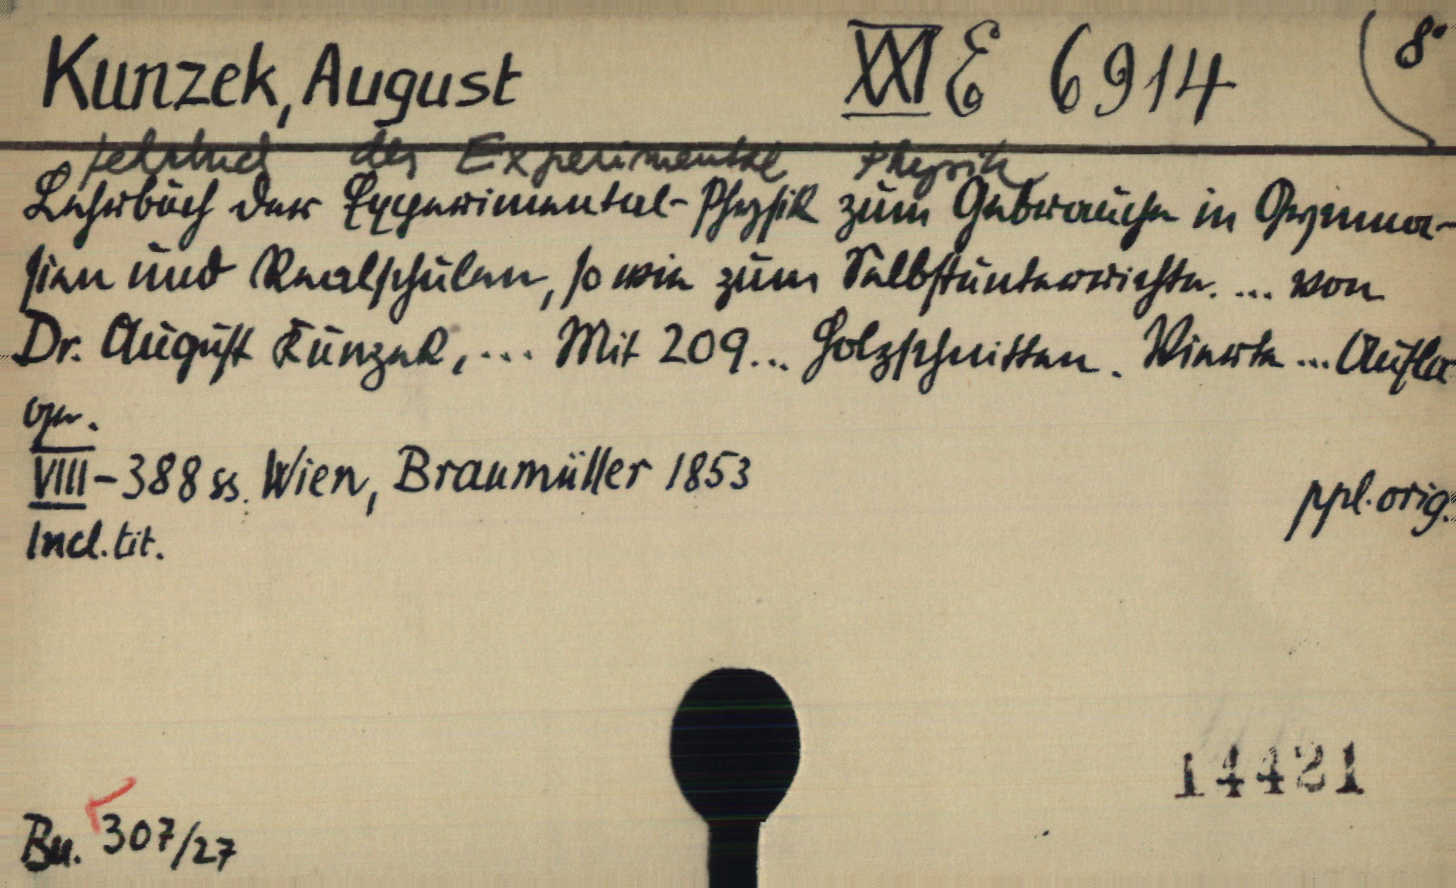 Kunzek, August XXI E 6914 8°
Lehrbuch der Experimental Physik
Lehrbuch der Experimental-Physik zum Gebrauche in Gymna-
sien und Realschulen, so wie zum Selbstunterrichte. ... von
Dr. August Kunzek, ... Mit 209 ... Holzschnitten. Vierte ... Aufla
ge.
VIII-388 ss. Wien, Braumüller 1853
ppl. orig.
Incl. tit.
14421
Bu. 307/27